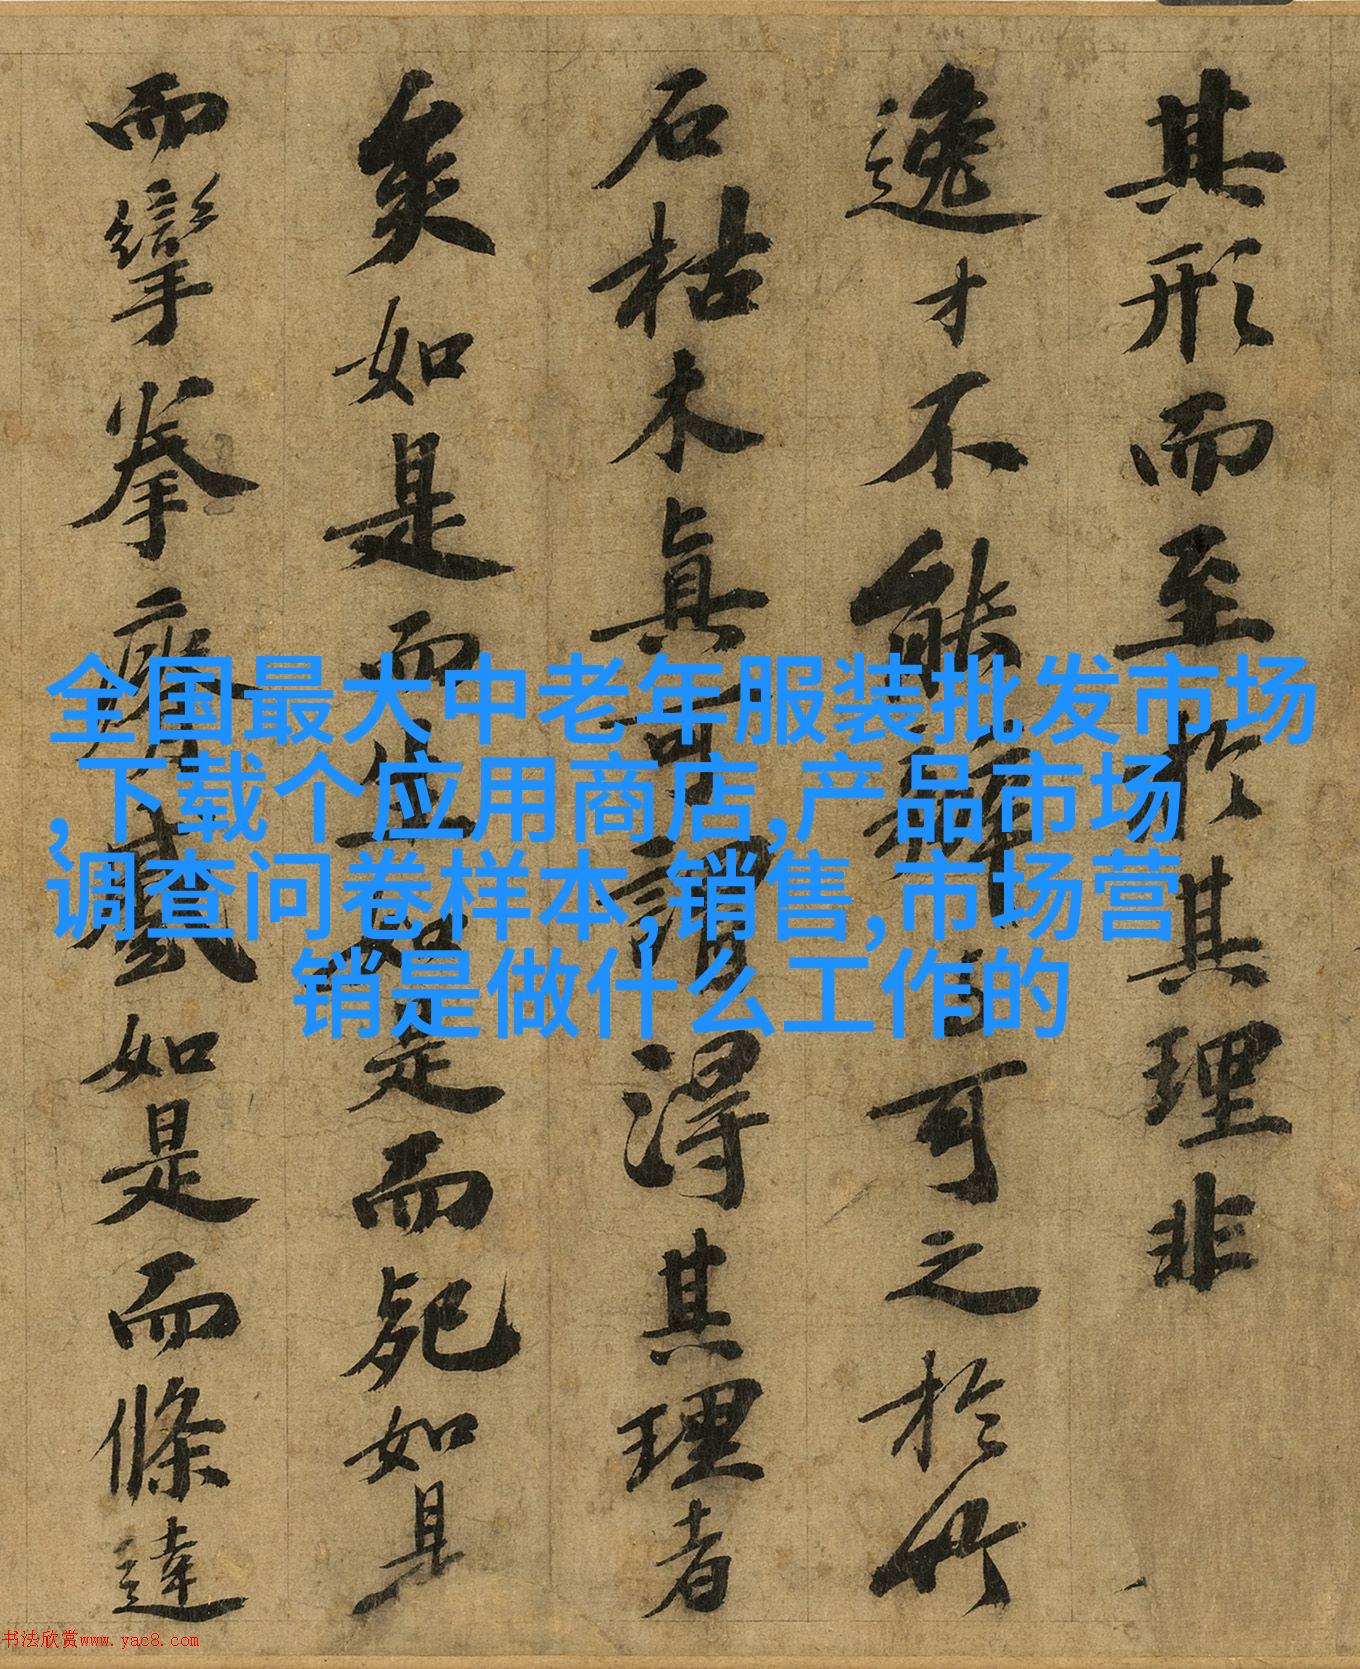 其形而至於其理非
逸才不能辨與可之於竹
石枯木真可謂得其理者
矣如是而生如是而死如是
而攣拳瘠蹙如是而條達
全国最大中老年服装批发市场
,下载个应用商店,产品市场
调查问卷样本,销售,市场营
销是做什么工作的
书法欣赏www.yac8.com